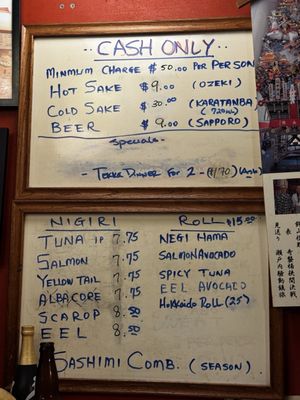 CASH ONLY
MINMUM CHARGE $50.00 PER PERSON
HOT SAKE $9.00 (OZEKI)
COLD SAKE $30.00 (KARATANBA) (720ML)
BEER $9.00 (SAPPORO)
Specials-
- TEKKA DINNER FOR 2 - ($170) (Cash)
NIGIRI ROLL $15.00
TUNA 1P 7.75 NEGI HAMA
SALMON 7.75 SALMON AVOCADO
YELLOW TAIL 7.75 SPICY TUNA
ALBACORE 7.75 EEL AVOCADO
SCAROP 8.50 Hokkaido ROLL (25)
EEL 8.50
SASHIMI COMB. (SEASON)